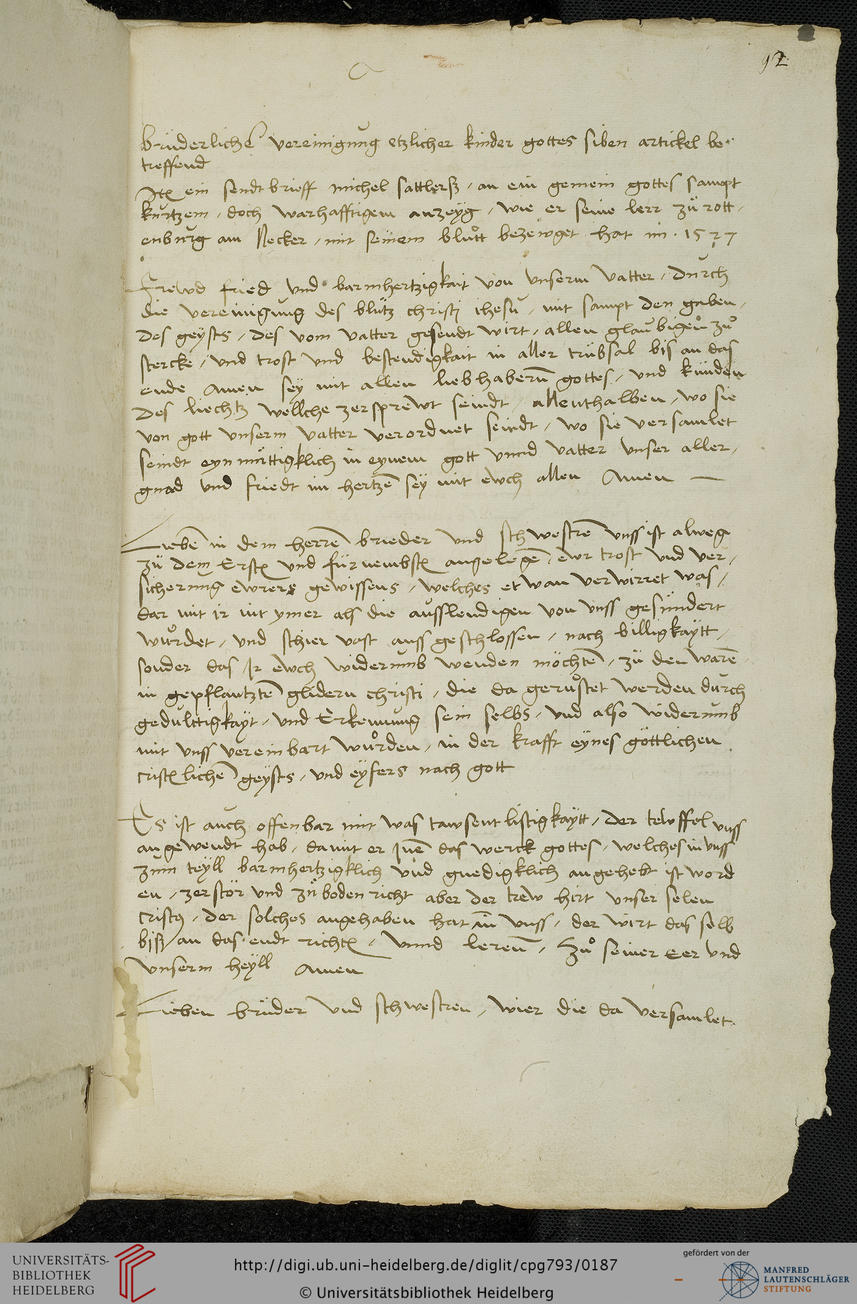 92
brüderliche vereinigung etzlicher kinder gottes siben artickel be-
treffend
Itē ein sendtbrieff michel sattlerß / an ein gemein gottes sampt
kurtzem / doch warhafftigem anzeyg / wie er seine lerr zů rott-
enburg am Necker / mit seinem blůtt bezewget hat im . 1527
Frewd fried vnd barmhertzigkait von vnserm vatter / durch
die vereinigung des blutz christi ihesu / mit sampt den gaben /
des geysts / des vom vatter gesendt wirt / allen glaubigen zů
stercke / vnd trost vnd bestendigkait in aller trübsal bis an das
ende Amen sey mit allen liebhaberñ gottes / vnd kinden
des liechtz wellche zersprewt seindt / allenthalben / wo sie
von gott vnserm vatter verordnet seindt / wo sie versamlet
seindt eynmüttigklich in eynem gott vnnd vatter vnser aller /
gnad vnd friedt im hertzē sey mit ewch allen Amen —
Liebē in dem herrē brieder vnd schwestrē vnss ist alweg
zů dem Erstē vnd fürnembstē angelegē / ewr trost vnd ver-
sicherung ewrers gewissens / welches etwan verwirret was /
dar mit ir nit ymer als die ausslendigen von vnss gesündert
wůrdet / vnd schier vast auss geschlossen / nach billigkaytt /
sonder das Ir ewch widerumb wenden möchtē / zů den warē
in gepflantztē glidern christi / die da gerůstet werden durch
gedulttigkayt / vnd Erkennung sein selbs / vnd also widerumb
mit vnss vereinbart wůrden / in der krafft eynes göttlichen
cristēlichē geysts / vnd eyfers nach gott
Es ist auch offenbar mit was tawsent listigkaytt / der tewffel vnss
angewendt hab / damit er Inē das werck gottes / welches in vnss
zum teyll barmhertzigklich vnd gnedigklich angehebt ist word
en / zerstör vnd zů boden richt aber der trew hirt vnser selen
cristus / der solches angehaben hat in vnss / der wirt das selb
biß an das endt richtē / vnnd lerenn / zů seiner Eer vnd
vnserm heyll Amen
Lieben brüder vnd schwestren / wier die da versamlet
UNIVERSITÄTS-
BIBLIOTHEK
HEIDELBERG
http://digi.ub.uni-heidelberg.de/diglit/cpg793/0187
© Universitätsbibliothek Heidelberg
gefördert von der
MANFRED
LAUTENSCHLÄGER
STIFTUNG